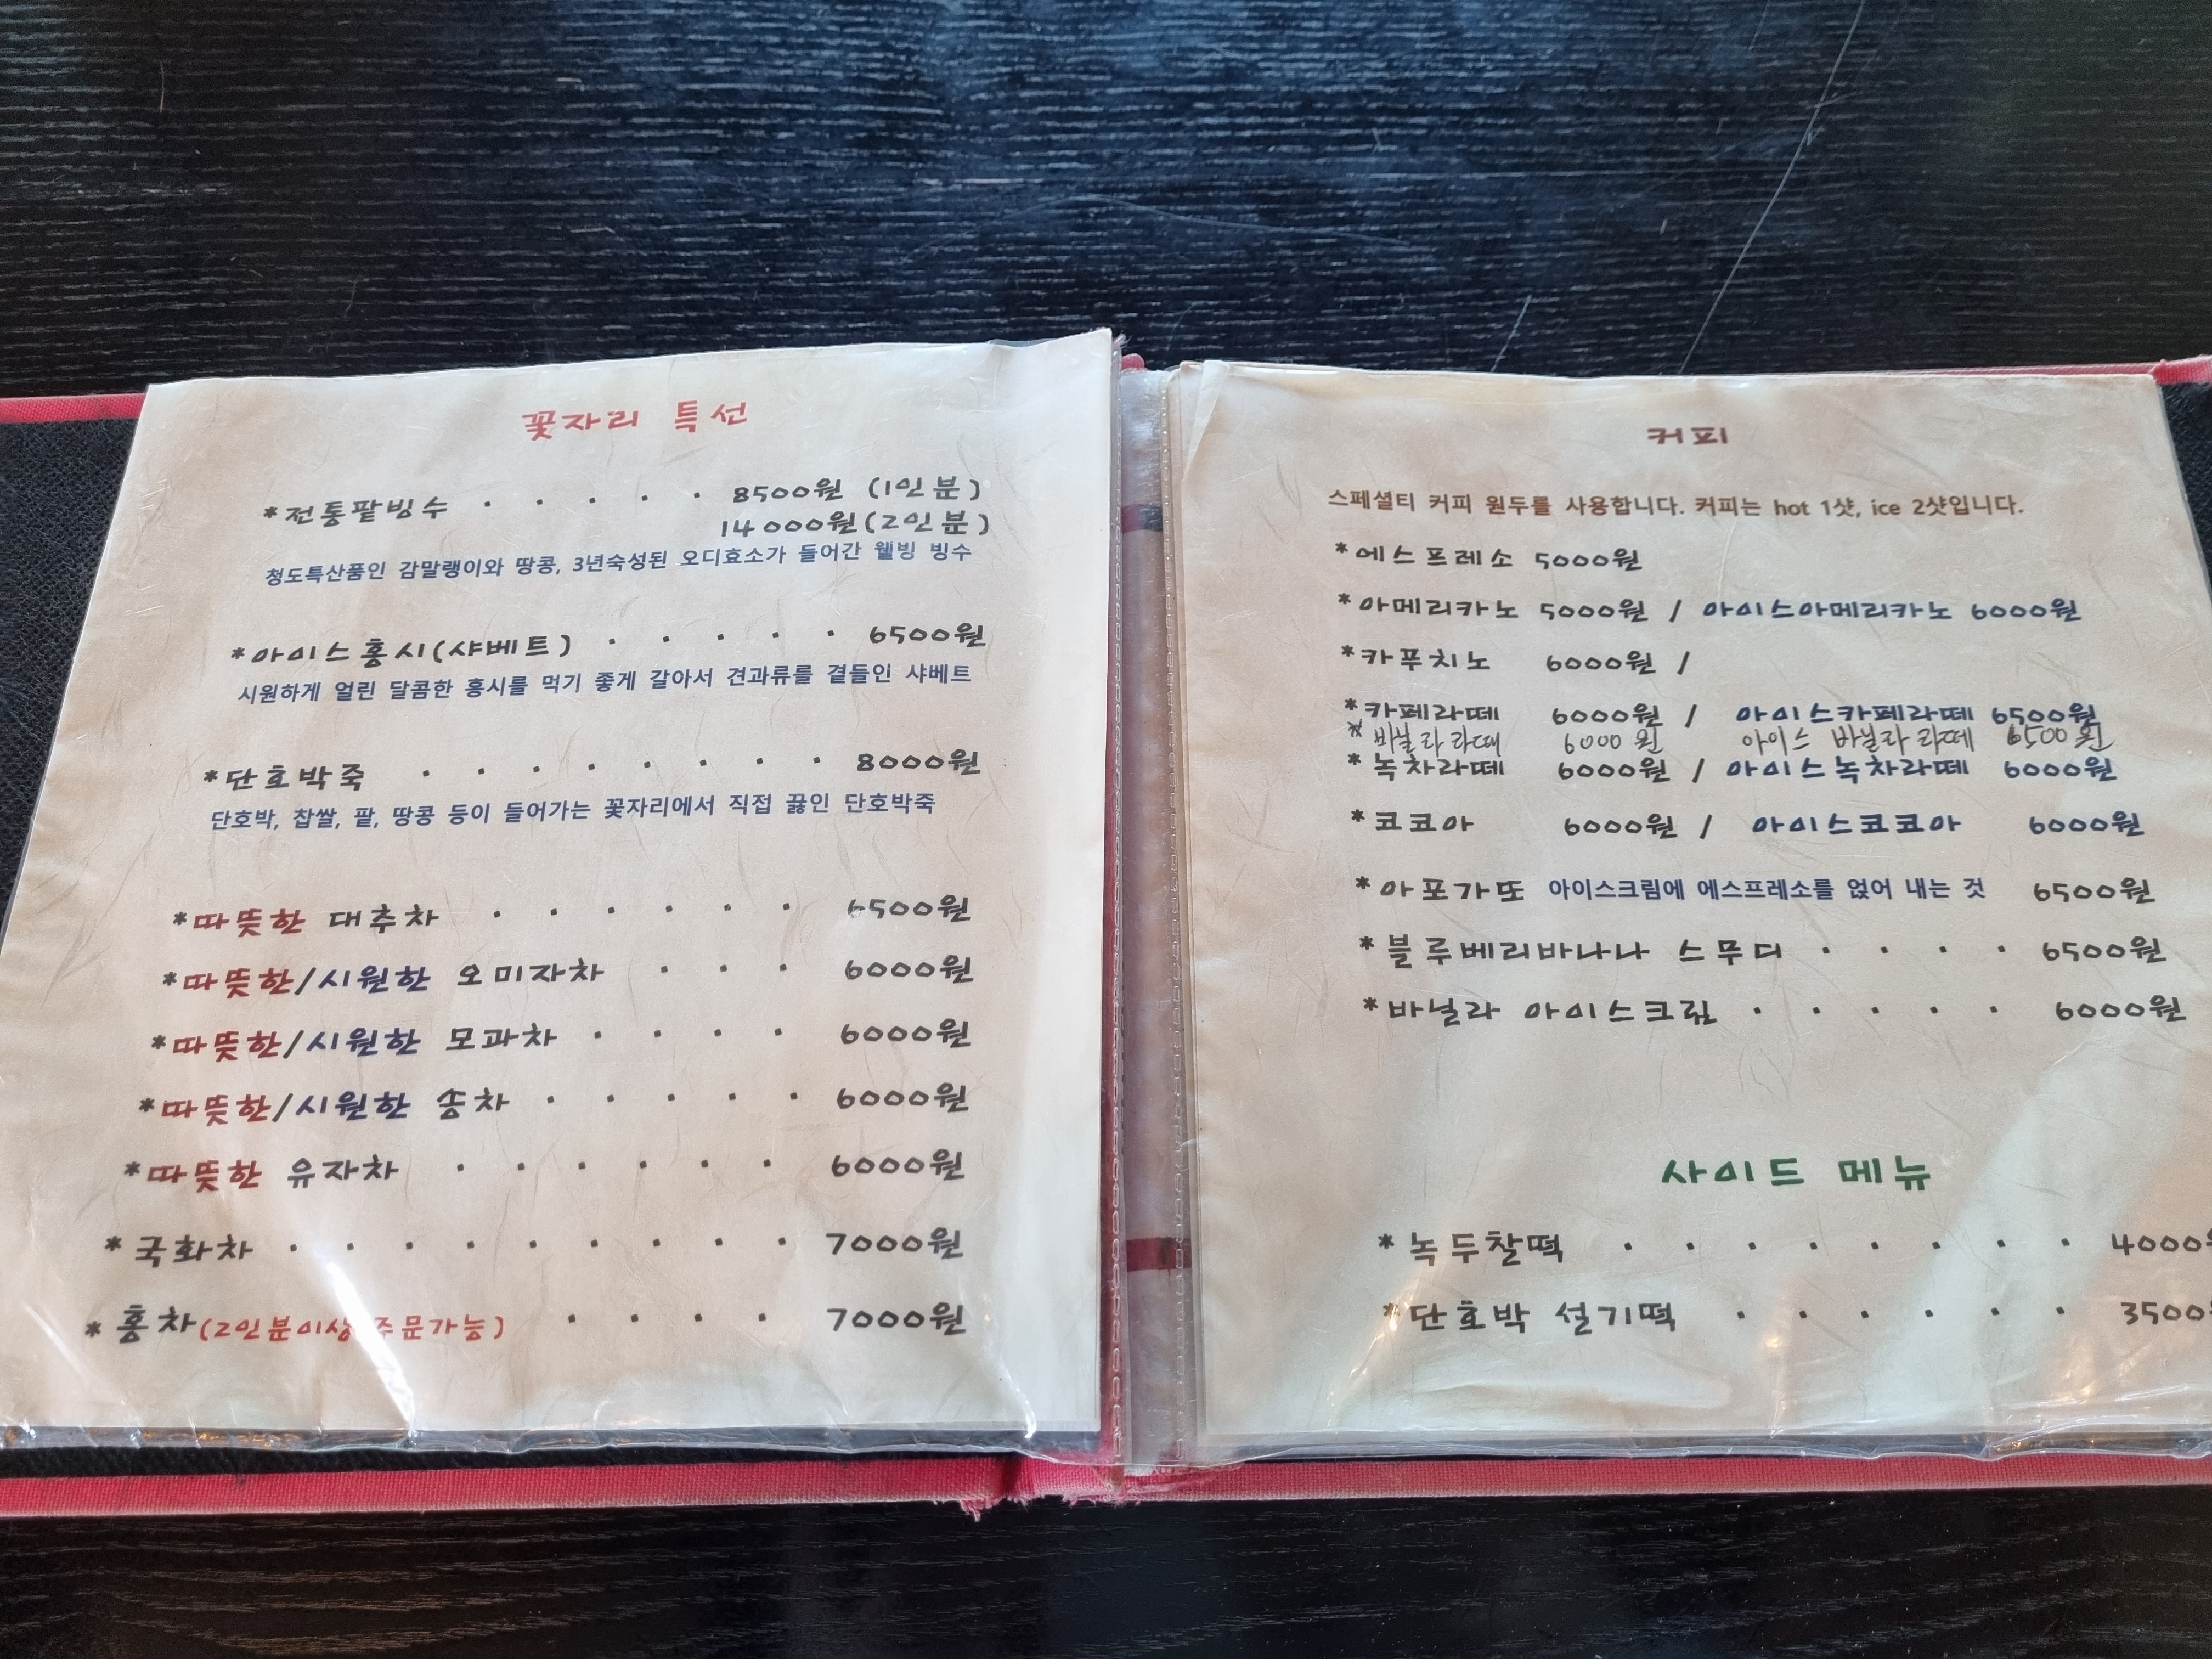 꽃자리 특선
*전통팥빙수 · · · · · 8500원 (1인분)
14000원(2인분)
청도특산품인 감말랭이와 땅콩, 3년숙성된 오디효소가 들어간 웰빙 빙수
*아이스홍시(샤베트) · · · · · 6500원
시원하게 얼린 달콤한 홍시를 먹기 좋게 갈아서 견과류를 곁들인 샤베트
*단호박죽 · · · · · · · · 8000원
단호박, 찹쌀, 팥, 땅콩 등이 들어가는 꽃자리에서 직접 끓인 단호박죽
*따뜻한 대추차 · · · · · · 6500원
*따뜻한/시원한 오미자차 · · · 6000원
*따뜻한/시원한 모과차 · · · · 6000원
*따뜻한/시원한 송차 · · · · · 6000원
*따뜻한 유자차 · · · · · · 6000원
*국화차 · · · · · · · · · 7000원
*홍차(2인분이상 주문가능) · · · · 7000원
커피
스페셜티 커피 원두를 사용합니다. 커피는 hot 1샷, ice 2샷입니다.
*에스프레소 5000원
*아메리카노 5000원 / 아이스아메리카노 6000원
*카푸치노 6000원 /
*카페라떼 6000원 / 아이스카페라떼 6500원
*바닐라라떼 6000원 아이스 바닐라라떼 6500원
*녹차라떼 6000원 / 아이스녹차라떼 6000원
*코코아 6000원 / 아이스코코아 6000원
*아포가또 아이스크림에 에스프레소를 얹어 내는 것 6500원
*블루베리바나나 스무디 · · · · 6500원
*바닐라 아이스크림 · · · · · 6000원
사이드 메뉴
*녹두찰떡 · · · · · · · · 4000원
*단호박 설기떡 · · · · · · 3500